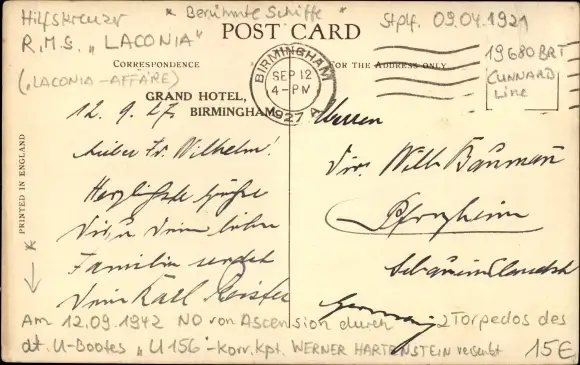 Hilfskreuzer
R.M.S. „LACONIA"
(„LACONIA-AFFÄRE)
* Berühmte Schiffe *
Stplf. 09.04.1921
19680 BRT
CUNNARD
Line
POST CARD
CORRESPONDENCE
FOR THE ADDRESS ONLY
BIRMINGHAM
SEP 12
4-PM
1927
A
GRAND HOTEL,
BIRMINGHAM
PRINTED IN ENGLAND
12. 9. 27.
Wilhelm!
Herzlichste Grüße
Dir, u. Deiner lieben
Familie sendet
Dein Karl
Herrn
Dir. Willi
Pforzheim
Germany
Am 12.09.1942 NO von Ascension durch 2 Torpedos des
dt. U-Bootes „U 156"-Korv.kpt. WERNER HARTENSTEIN versenkt
15€